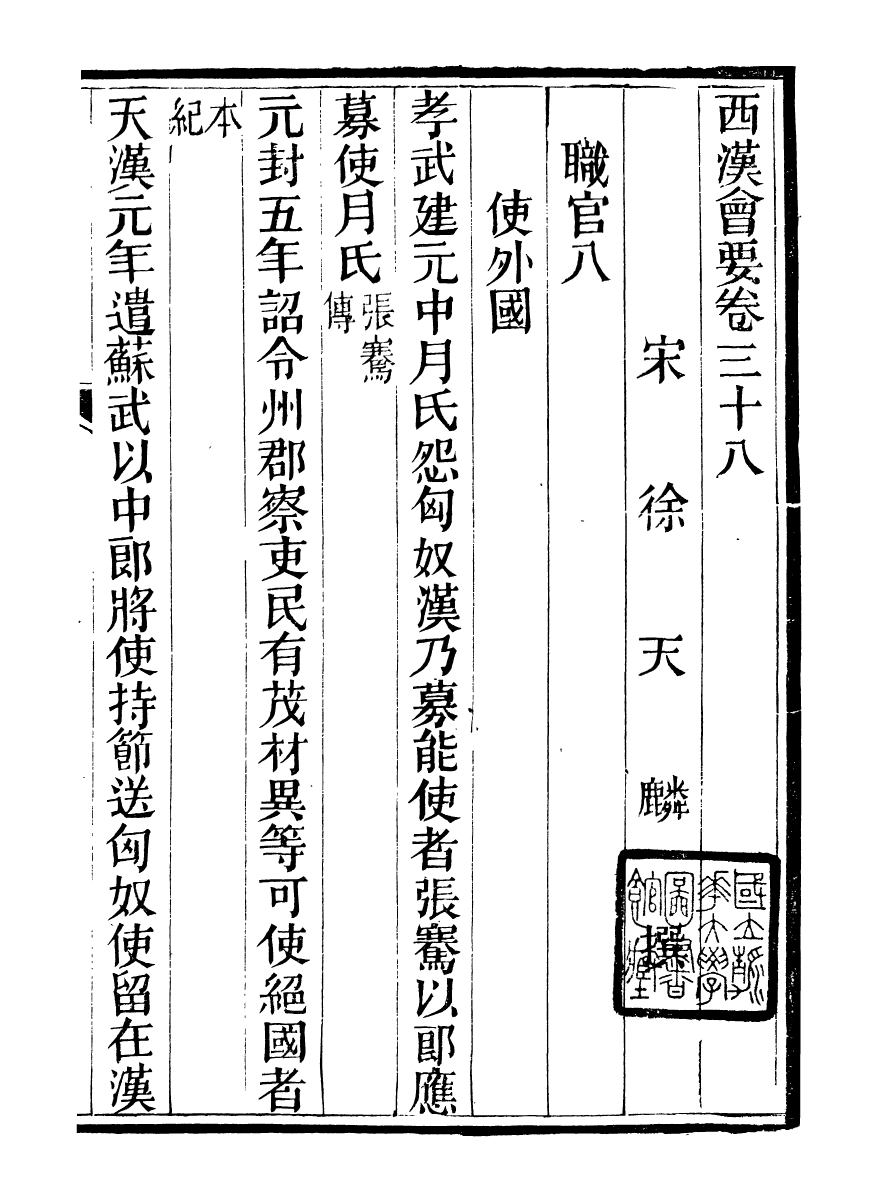 西漢會要卷三十八
宋徐天麟撰
職官八
使外國
孝武建元中月氏怨匈奴漢乃募能使者張騫以郎應
募使月氏張騫傳
元封五年詔令州郡察吏民有茂材異等可使絕國者
本紀
天漢元年遣蘇武以中郎將使持節送匈奴使留在漢
國立清華大學圖書館